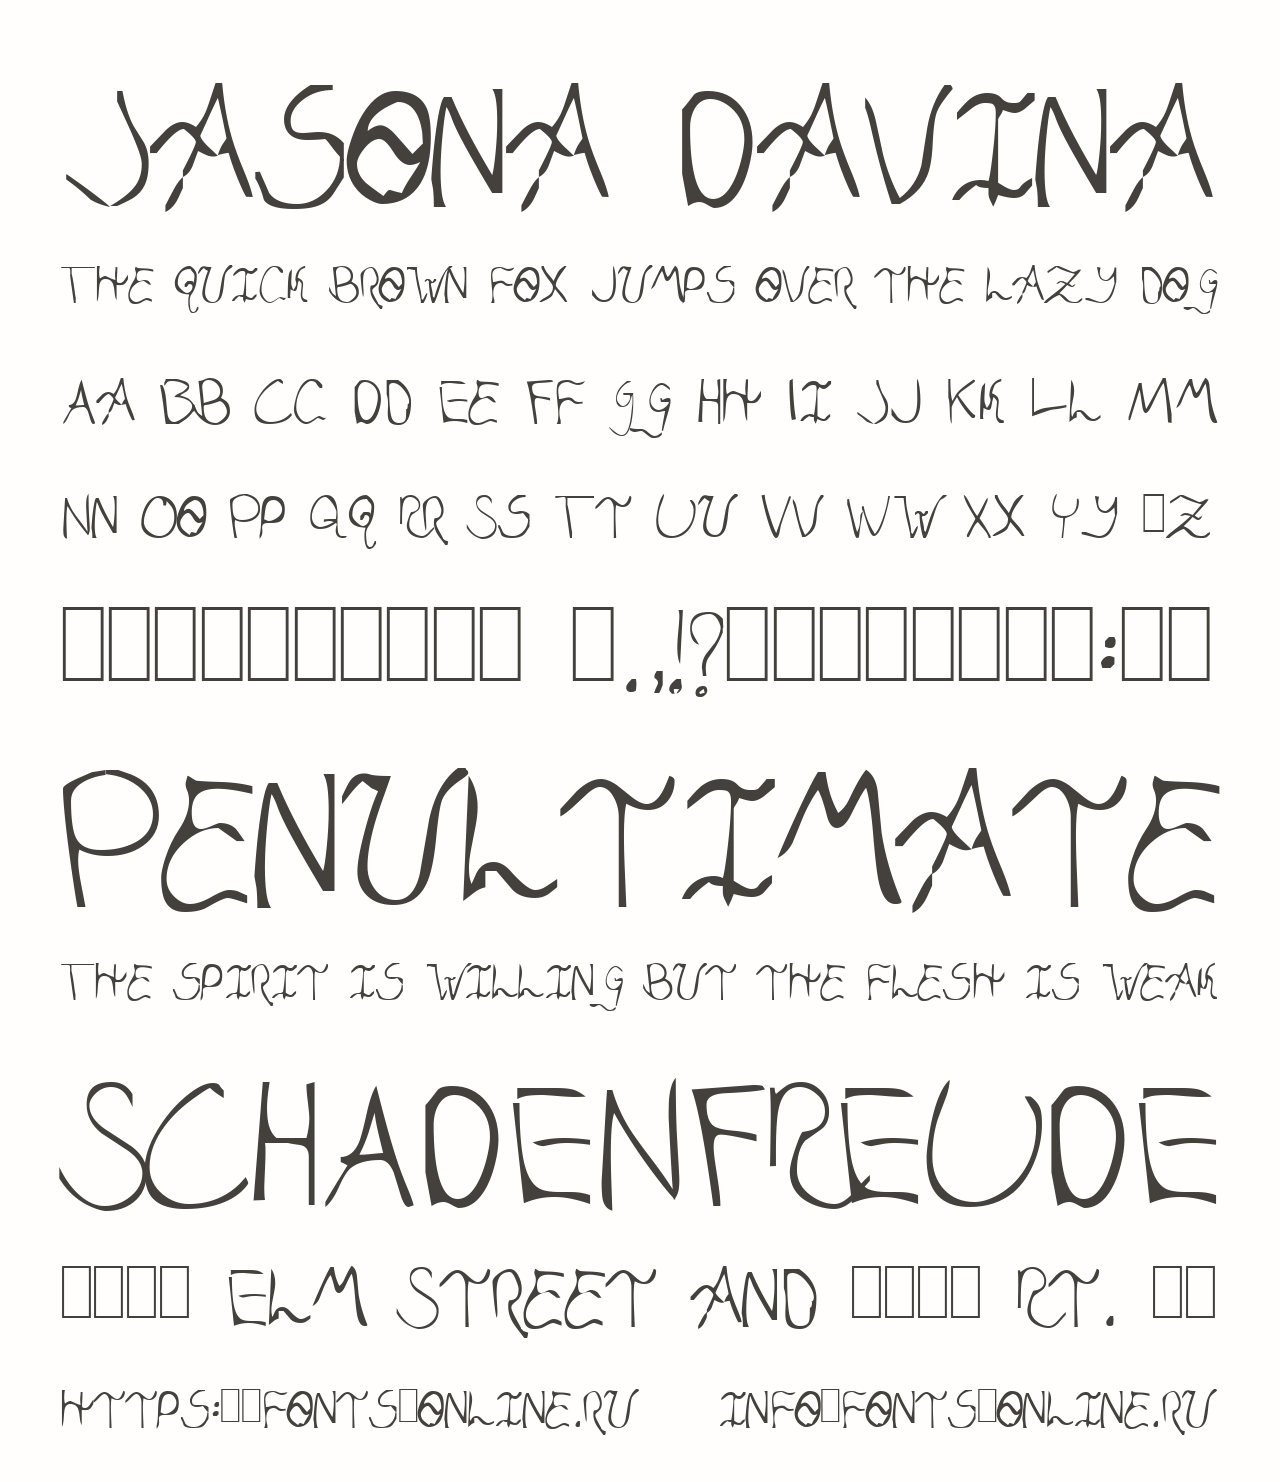 JASONA DAVINA
THE QUICK BROWN FOX JUMPS OVER THE LAZY DOG
AA BB CC DD EE FF GG HH II JJ KK LL MM
NN OO PP QQ RR SS TT UU VV WW XX YY □Z
□□□□□□□□□□ □.,!?□□□□□□□□:□□
PENULTIMATE
THE SPIRIT IS WILLING BUT THE FLESH IS WEAK
SCHADENFREUDE
□□□□ ELM STREET AND □□□□ RT. □□
HTTPS:□□FONTS□ONLINE.RU INFO□FONTS□ONLINE.RU